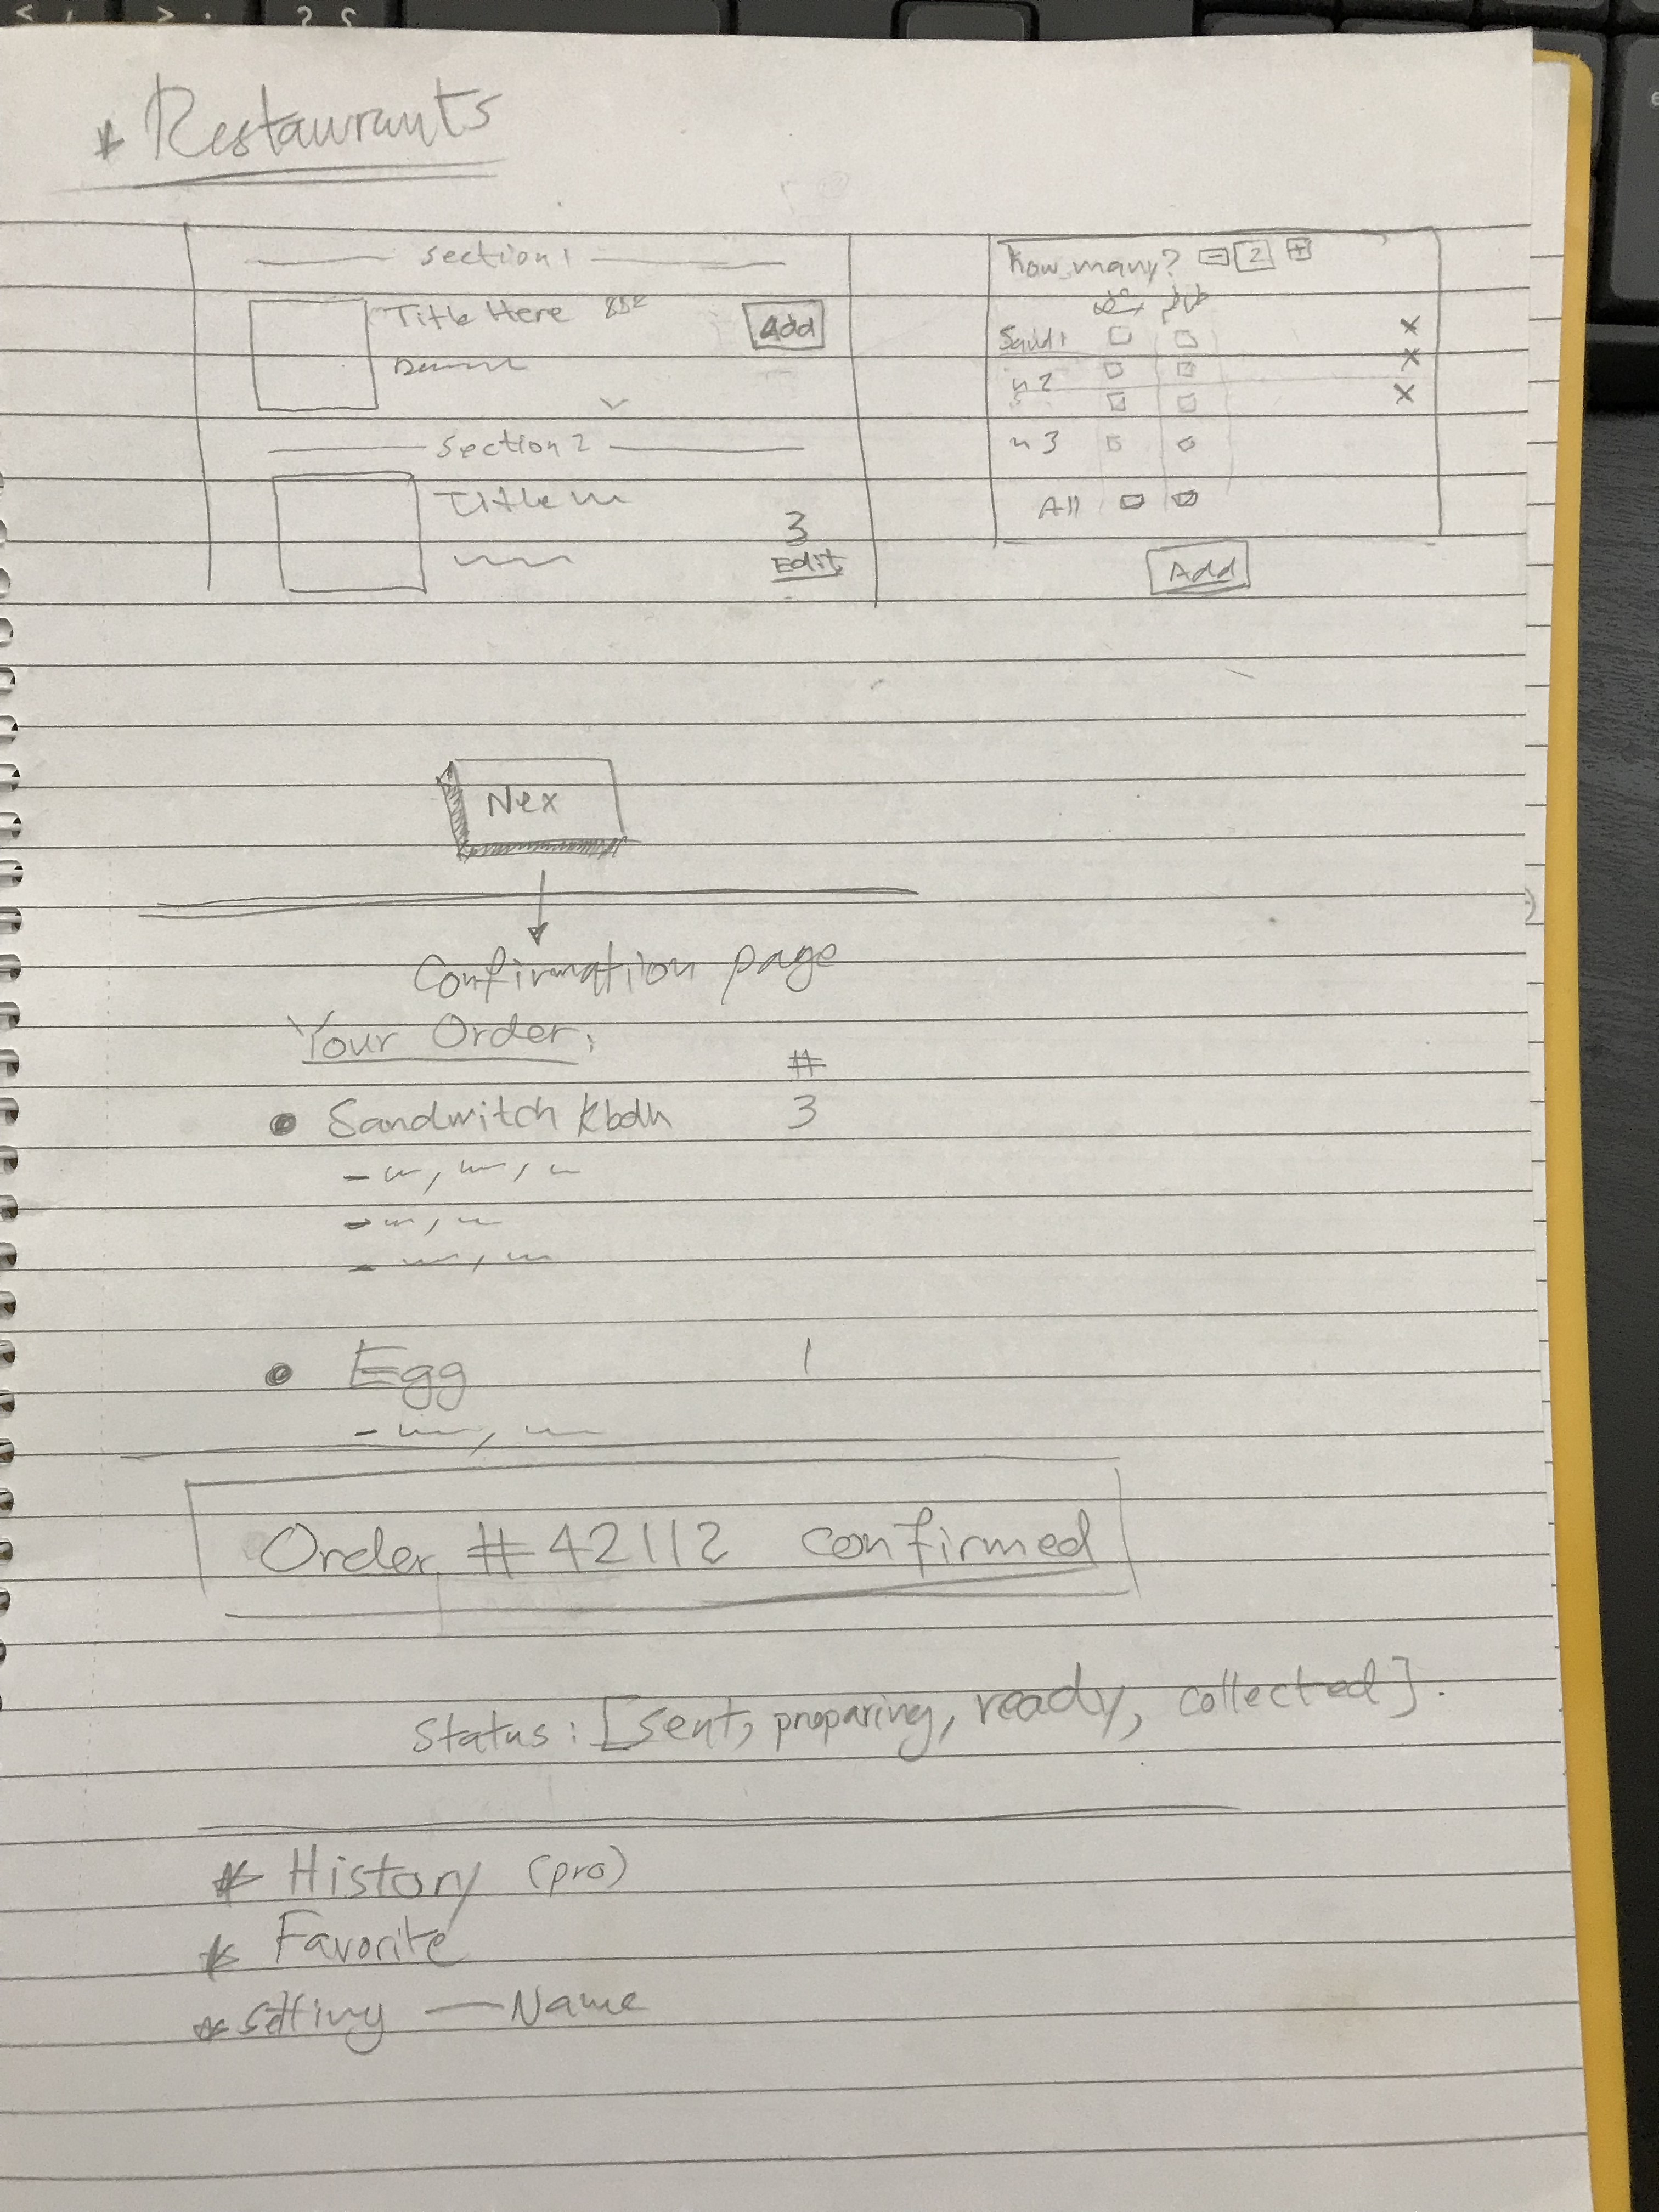 * Restaurants
section 1
Title Here
Add
Section 2
Title
3
Edit
How many? - 2 +
x
x
n 2
x
n 3
All
Add
Nex
Confirmation page
Your Order:
#
Sandwitch kbdh 3
Egg 1
Order # 42112 confirmed
Status: [sent, preparing, ready, collected].
* History (pro)
* Favorite
* setting — Name